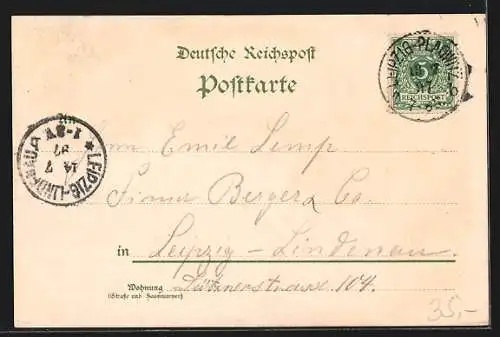 Deutsche Reichspost
Postkarte
LEIPZIG-PLAGWITZ
5
REICHSPOST
LEIPZIG-LINDENAU
14 7
97
1-2V
An
Herrn Emil Lemp
Firma Berger & Co.
in Leipzig-Lindenau.
Wohnung Lütznerstrasse 104.
(Straße und Hausnummer)
35,-